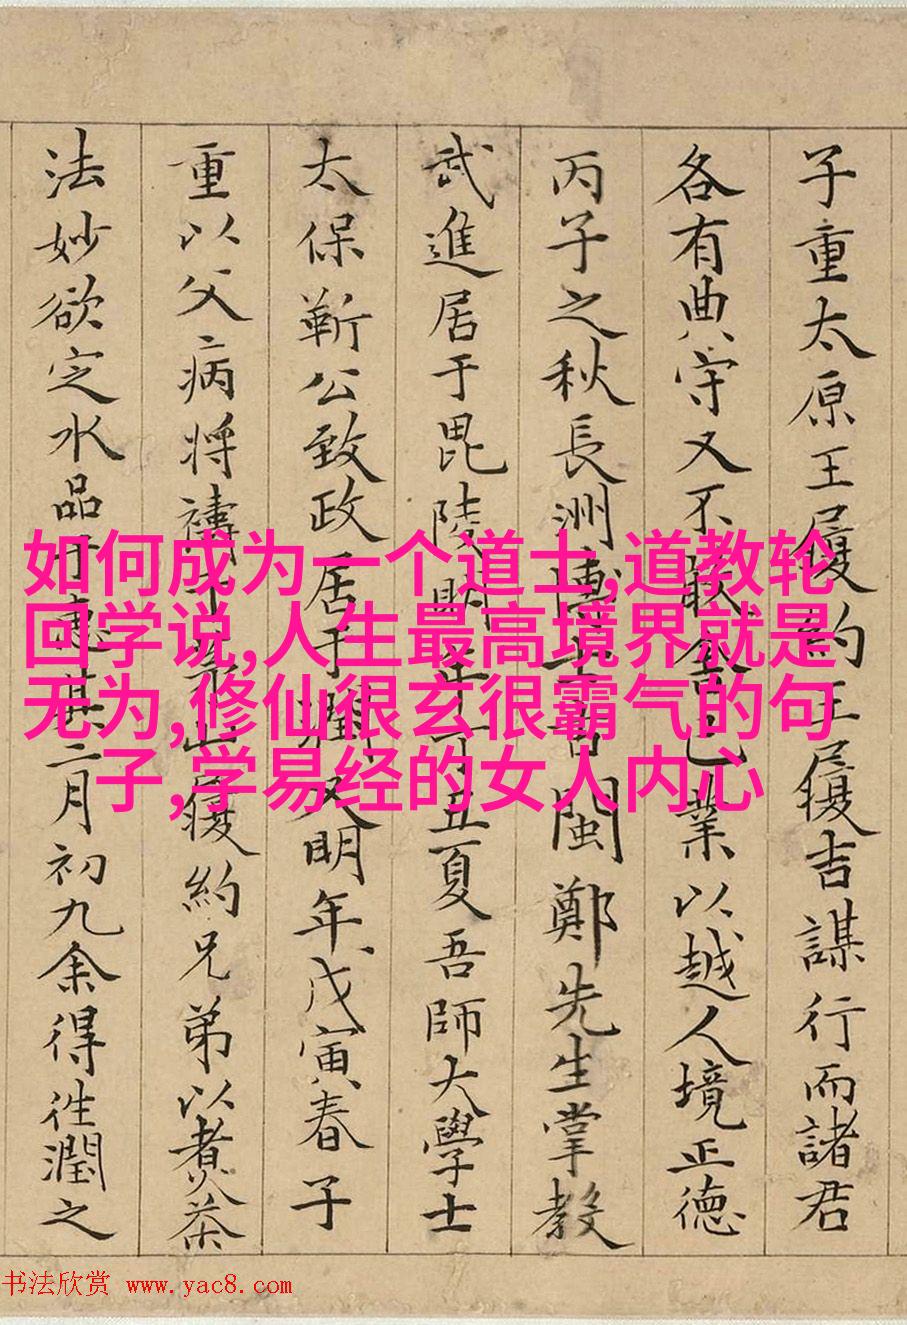 子重太原王履約王履吉謀行而諸君
各有典守又不敢舍己業以越人境正德
丙子之秋長洲博士古閩鄭先生掌教
武進居于毘陵明年丁丑夏吾師大學士
太保靳公致政居于潤又明年戊寅春子
重以父病將禱于茅山履約兄弟以煮茶
法妙欲定水品于惠其二月初九余得往潤之
如何成为一个道士,道教轮
回学说,人生最高境界就是
无为,修仙很玄很霸气的句
子,学易经的女人内心
书法欣赏 www.yac8.com